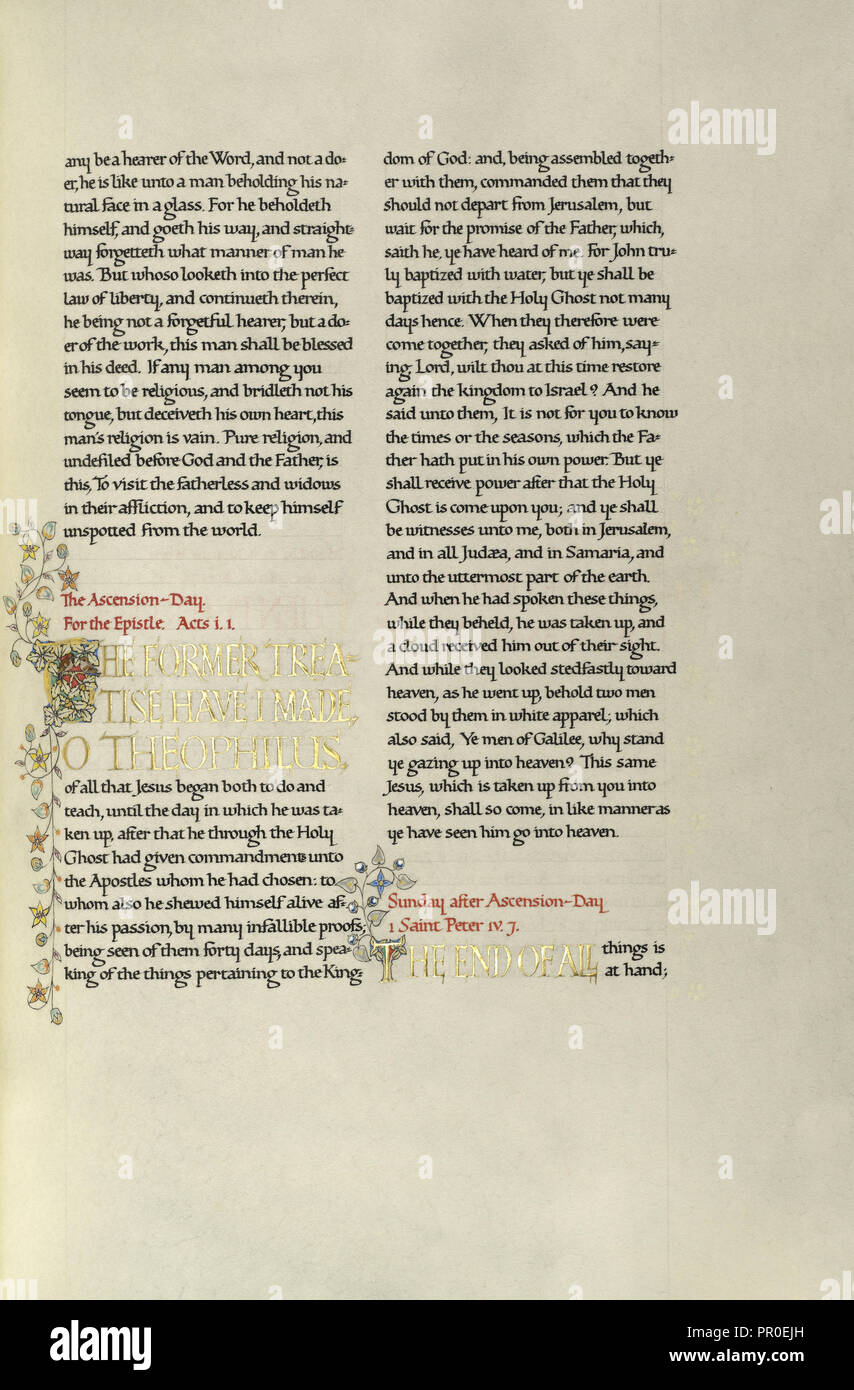 any be a hearer of the Word, and not a do=
er, he is like unto a man beholding his na=
tural face in a glass. For he beholdeth
himself, and goeth his way, and straight=
way forgetteth what manner of man he
was. But whoso looketh into the perfect
law of liberty, and continueth therein,
he being not a forgetful hearer, but a do=
er of the work, this man shall be blessed
in his deed. If any man among you
seem to be religious, and bridleth not his
tongue, but deceiveth his own heart, this
man's religion is vain. Pure religion, and
undefiled before God and the Father, is
this, To visit the fatherless and widows
in their affliction, and to keep himself
unspotted from the world.
The Ascension-Day.
For the Epistle. Acts i. 1.
THE FORMER TREA=
TISE HAVE I MADE,
O THEOPHILUS,
of all that Jesus began both to do and
teach, until the day in which he was ta=
ken up, after that he through the Holy
Ghost had given commandments unto
the Apostles whom he had chosen: to
whom also he shewed himself alive af=
ter his passion, by many infallible proofs;
being seen of them forty days, and spea=
king of the things pertaining to the King=
dom of God: and, being assembled togeth=
er with them, commanded them that they
should not depart from Jerusalem, but
wait for the promise of the Father, which,
saith he, ye have heard of me. For John tru=
ly baptized with water; but ye shall be
baptized with the Holy Ghost not many
days hence. When they therefore were
come together, they asked of him, say=
ing, Lord, wilt thou at this time restore
again the kingdom to Israel? And he
said unto them, It is not for you to know
the times or the seasons, which the Fa=
ther hath put in his own power. But ye
shall receive power after that the Holy
Ghost is come upon you; and ye shall
be witnesses unto me, both in Jerusalem,
and in all Judæa, and in Samaria, and
unto the uttermost part of the earth.
And when he had spoken these things,
while they beheld, he was taken up, and
a cloud received him out of their sight.
And while they looked stedfastly toward
heaven, as he went up, behold two men
stood by them in white apparel; which
also said, Ye men of Galilee, why stand
ye gazing up into heaven? This same
Jesus, which is taken up from you into
heaven, shall so come, in like manner as
ye have seen him go into heaven.
Sunday after Ascension-Day
1 Saint Peter iv. 7.
THE END OF ALL things is
at hand;
alamy
alamy
alamy
alamy
Image ID: PR0EJH
www.alamy.com